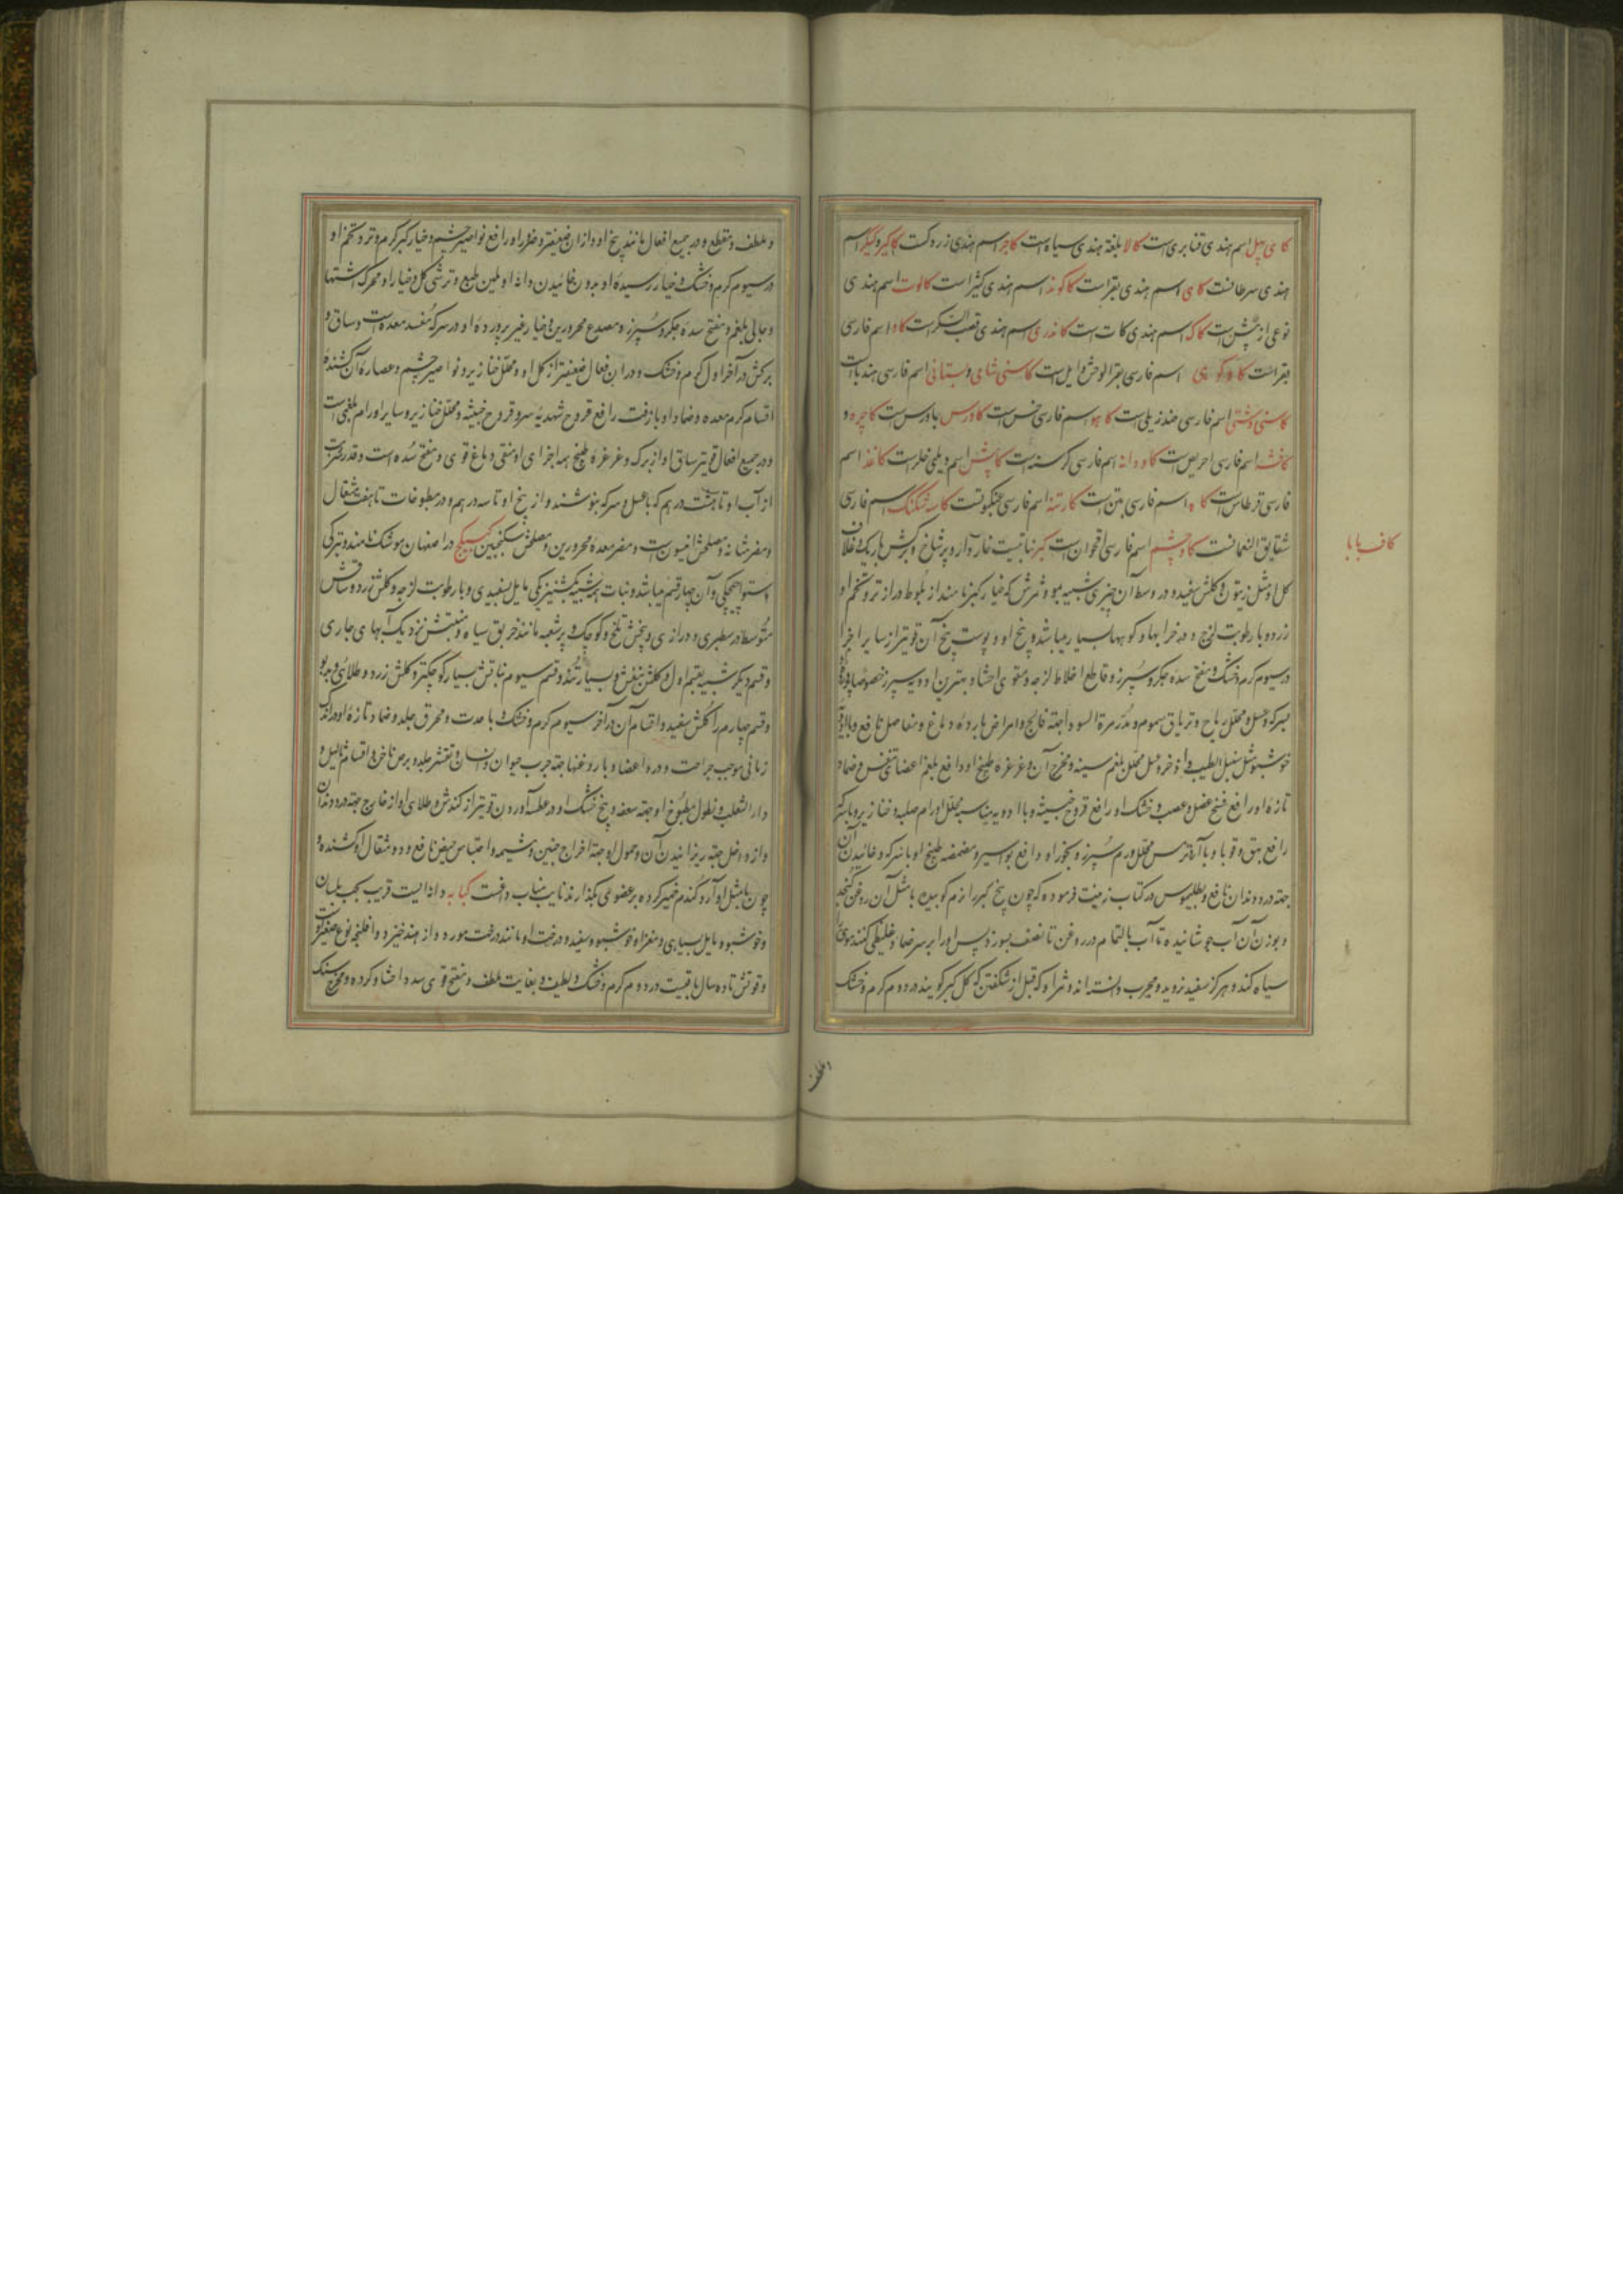 کای پیل اسم هندی قنابری است کالا بلغة هندی سیاه است کاجر اسم هندی زردک است کاکیر و کیکر اسم
هندی سرطانست کای اسم هندی بقر است کاکوند اسم هندی کثیرا است کالوت اسم هندی
نوعی از بیش است کاک اسم هندی کات است کاندری اسم هندی قصب السکر است کاو اسم فارسی
بقر است کاوکوهی اسم فارسی بقر الوحش و ایل است کاسنی شامی و بستانی اسم فارسی هندبا است
کاسنی دشتی اسم فارسی خندریلی است کاهو اسم فارسی خس است کاورس جاورس است کاجره و
کافشه اسم فارسی احریض است کاودانه اسم فارسی کرسنه است کاپش اسم دیلمی خلر است کاغذ اسم
فارسی قرطاس است کاه اسم فارسی تبن است کارتنه اسم فارسی عنکبوتست کاسه شکنک اسم فارسی
شقایق النعمانست کاوچشم اسم فارسی اقحوان است کبر نباتیست خاردار و پرشاخ و برکش باریک و غلاف
کاف با با
کل او مثل زیتون و کلش سفید و در وسط آن چیزی شبیه بمو و ثمرش که خیار کبر نامند از بلوط درازتر و تخم او
زرد و با رطوبت لزج و در خرابها و کوهها بسیار میباشد و بیخ او و پوست بیخ آن قویتر از سایر اجزا
در سیوم کرم و خشک و مفتح سده جکر و سپرز و قاطع اخلاط لزجه و مقوی احشا و بهترین ادویه سپرز خصوصا
بسرکه و عسل و محلل ریاح و تریاق سموم و مدر مرة السودا جهة فالج و امراض بارده دماغ و مفاصل نافع و با ادویه
خوشبو مثل سنبل الطیب و اذخر و عسل محلل بلغم سینه و مخرج آن و غرغره طبیخ او دافع بلغم اعضا تنفس و ضماد
تازه او رافع فسخ عضل و عصب و خشک او رافع قروح خبیثه و با ادویه مناسبه محلل اورام صلبه و خنازیر و با سرکه
رافع بهق و قوبا و با آرد ترمس محلل ورم سپرز و بخور او دافع بواسیر و مضمضه طبیخ او با سرکه و خائیدن آن
جهة درد دندان نافع و بطلیموس در کتاب زینت فرموده که چون بیخ کبر را نرم کوبیده با مثل آن روغن کنجد
و بوزن آن آب جوشانیده تا آب بالتمام در روغن تا نصف بسوزد پس او را بر سر ضماد غلیظی کنند موی را
سیاه کند و هرکز سفید نروید و مجرب دانسته اند و ثمر او که قبل از شکفتن که کل کبر کویند در دوم کرم و خشک
و ملطف
و ملطف و مقطع و در جمیع افعال مانند بیخ او و از ان ضعیفتر و ضرور او رافع نواصیر چشم و خیار کبر کرم و تر و تخم او
در سیوم کرم و خشک و خیار رسیده او بدون خائیدن دانه او ملین طبع و ترشی کل و خیار او محرک اشتها
و جالی بلغم و مفتح سده جکر و سپرز و مصدع محرورین و خیار غیر پرورده او در سرکه مفسد معده است و ساق و
برکش در آخر اول کرم و خشک و در این افعال ضعیفتر از کل او و محلل خنازیر و نواصیر چشم و عصاره آن کشنده
اقسام کرم معده و ضماد او با زفت رافع قروح شهدیه سر و قروح خبیثه و محلل خنازیر و سایر اورام بلغمی است
و در جمیع افعال قویتر ساق او از برک و غرغره طبیخ همه اجزای او منقی دماغ قوی و مفتح سده است و قدر شربت
از آب او تا هشت درهم که با عسل و سرکه بنوشند و از بیخ او تا سه درهم و در مطبوخات تا هفت مثقال
و مضر مثانه و مصلحش انیسون است و مضر معده محرورین و مصلحش سکنجبین کبیکج در اصفهان موشک نامند و بترکی
و آن چهار قسم میباشد و نبات او شبیه بکشنیز یکی مایل بسفیدی و با رطوبت لزجه و کلش زرد و ساقش
متوسط در سطبری و درازی و بیخش تلخ و کوچک و پرشعبه مانند خربق سیاه و منبتش نزدیک آبهای جاری
و قسم دیکر شبیه بقسم اول و کلش بنفش و بسیار تند و قسم سیوم نباتش بسیار کوچکتر و کلش زرد و طلائی و بدبو
و قسم چهارم را کلش سفید و اقسام آن در آخر سیوم کرم و خشک و با حدت و محرق جلد و ضماد تازه او در اندک
زمانی موجب جراحت و درد اعضا و با روغنها جهة جرب حیوان و انسان و تقشر جلد و برص ناخن و اقسام ثآلیل و
دار الثعلب و نطول مطبوخ او جهة سعفه و بیخ خشک او در عطسه آوردن قویتر از کندش و طلای او از خارج جهة درد دندان
و از داخل جهة ریزانیدن آن و حمول او جهة اخراج جنین و مشیمه و احتباس حیض نافع و دو مثقال او کشنده و
چون با مثل او آرد کندم خمیر کرده بر عضوی بکذارند نایب مناب داغست کبابه دانه ایست قریب بحب بلسان
و خوشبو و مایل بسیاهی و مغز او خوشبو و سفید و درخت او مانند درخت مورد و از هند خیزد و افلنجه نوع صغیر اوست
و قوتش تا ده سال باقیست در دوم کرم و خشک و لطیف و بغایت ملطف و مفتح قوی سده احشا و کرده و مخرج سنک